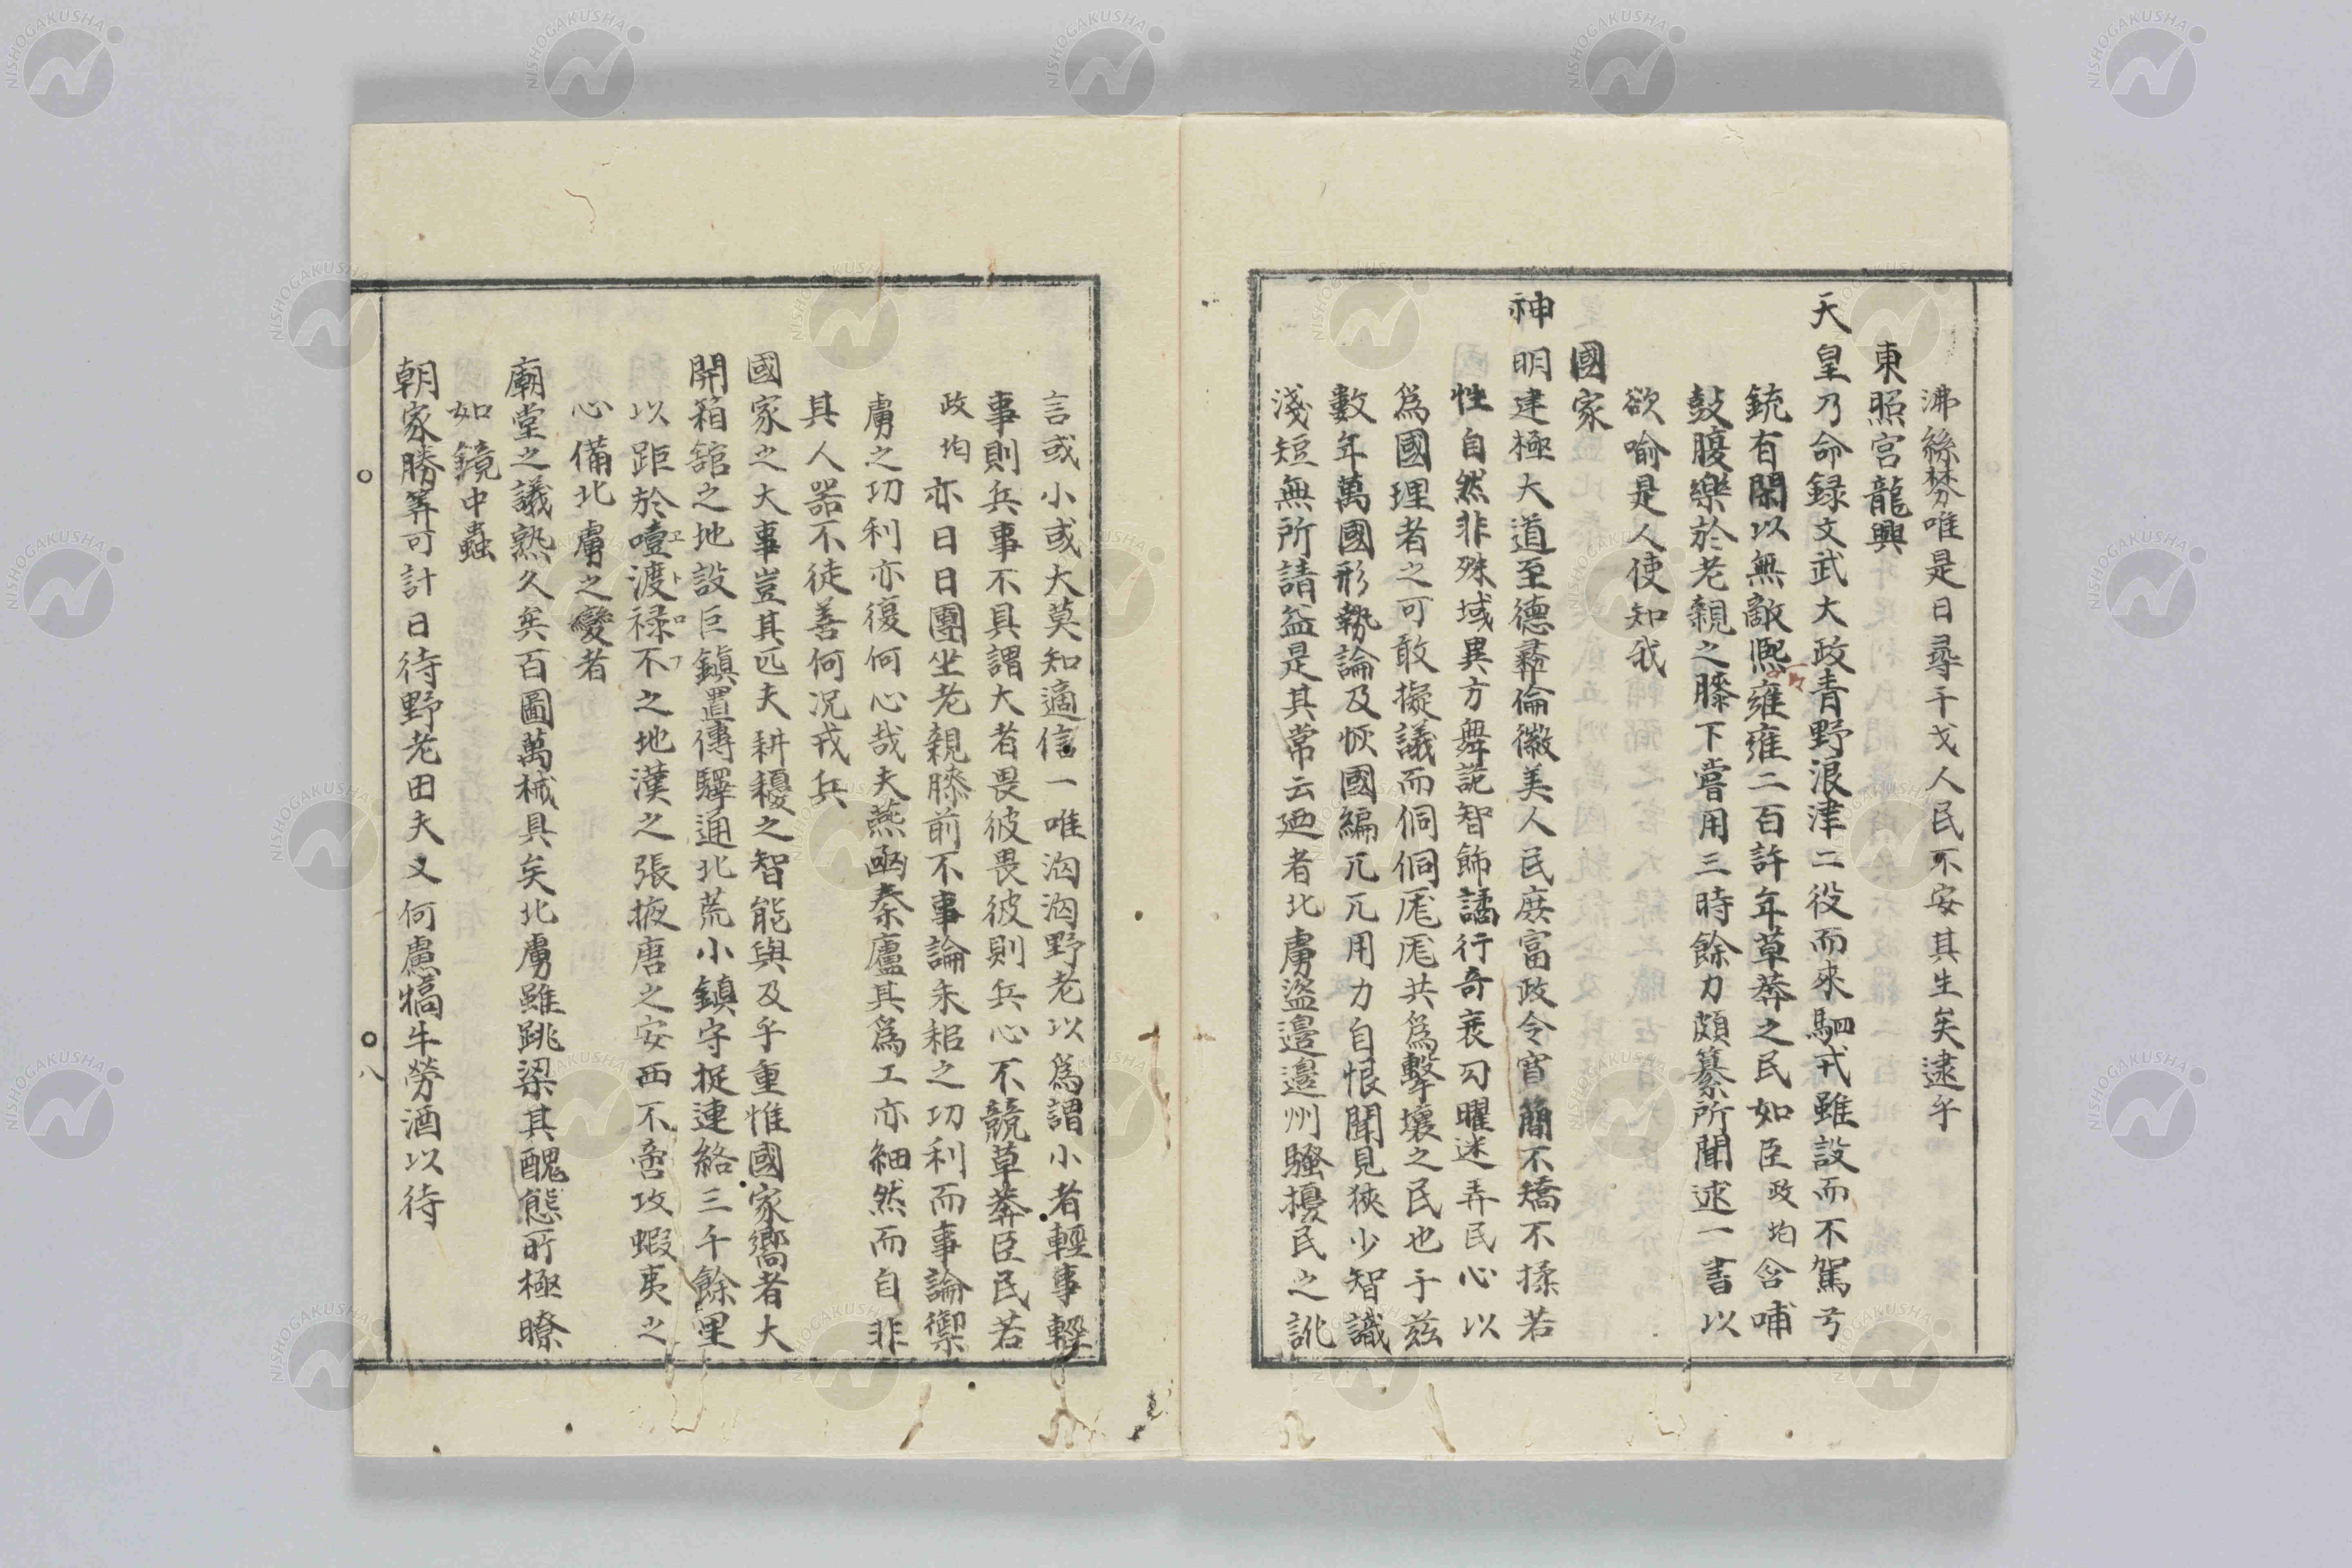 沸絲棼唯是日尋干戈人民不安其生矣逮乎
東照宮龍興
天皇乃命録文武大政青野浪津二役而來駟弌雖設而不駕弓
銃有閑以無敵熈雍雍二百許年草莽之民如臣政均含哺
鼓腹樂於老親之膝下嘗用三時餘力頗纂所聞述一書以
欲喻是人使知我
國家
神明建極大道至德彜倫徽美人民庶富政令寳簡不矯不揉若
性自然非殊域異方舞詭智飾譎行奇衺刃曜迷弄民心以
爲國理者之可敢擬議而侗侗厖厖共爲擊壤之民也于兹
數年萬國形勢論及恢國編兀兀用力自恨聞見狹少智識
淺短無所請益是其常云廼者北虜盜邉邉州騷擾民之訛
言或小或大莫知適信一唯洶洶野老以爲謂小者輕事輕
事則兵事不具謂大者畏彼畏彼則兵心不競草莽臣民若
政均亦日日團坐老親膝前不事論耒耜之功利而事論禦
虜之功利亦復何心哉夫燕凾秦廬其爲工亦細然而自非
其人器不徒善何況戎兵
國家之大事豈其匹夫耕耰之智能與及乎重惟國家嚮者大
開箱舘之地設巨鎭置傳驛通北荒小鎭守捉連絡三千餘里
以距於噎渡禄不之地漢之張掖唐之安西不啻攻蝦夷之
エトロフ
心備北虜之變者
廟堂之議熟久矣百圖萬械具矣北虜雖跳梁其醜態所極瞭
如鏡中蟲
朝家勝筭可計日待野老田夫又何慮犒牛勞酒以待
八
NISHOGAKUSHA